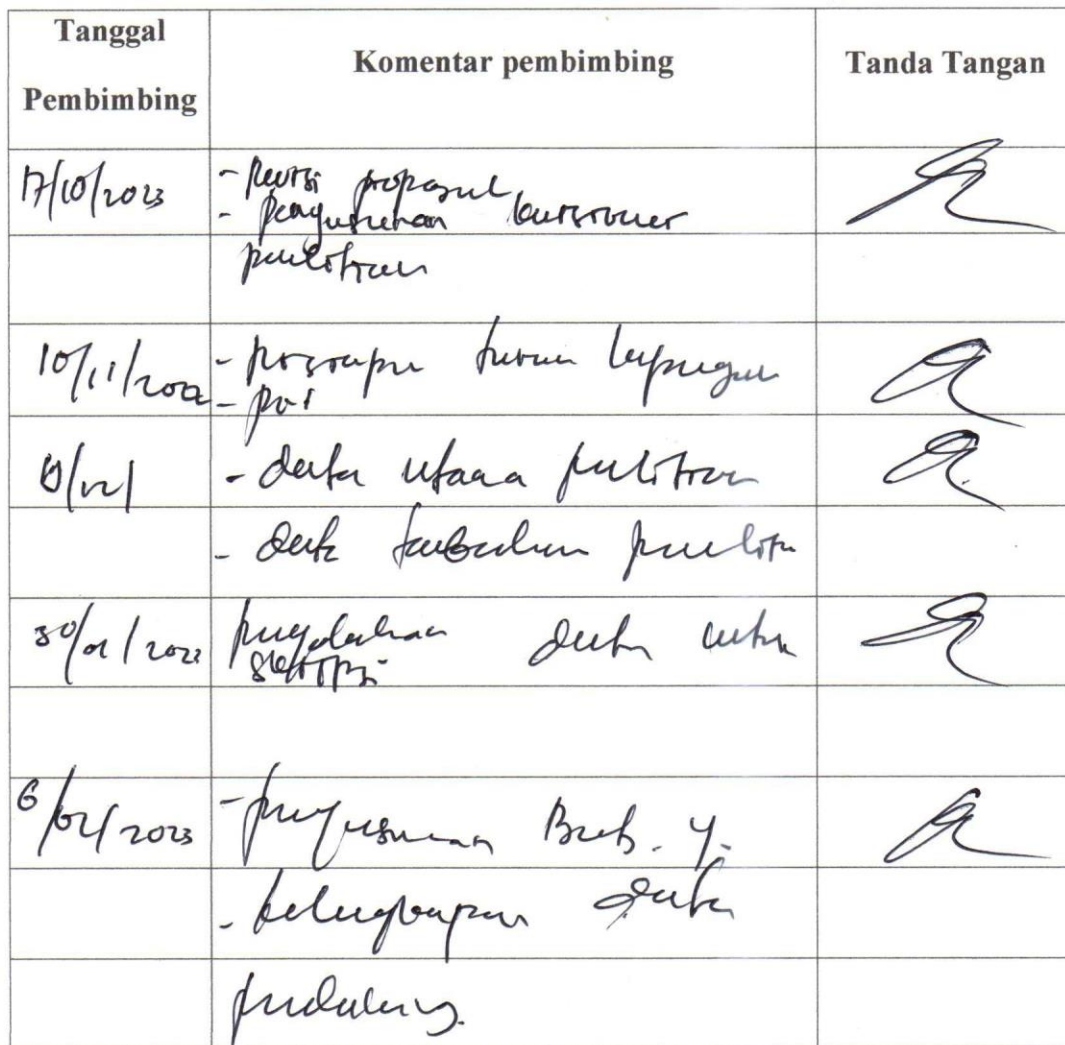 Tanggal
Pembimbing
Komentar pembimbing
Tanda Tangan
17/10/2023
- Revisi proposal
- Penyusunan kuisioner
penelitian
10/11/2022
- persiapan turun lapangan
- data utama penelitian
- data tambahan penelitian
30/01/2023
pengolahan data untuk
skripsi
6/02/2023
- penyusunan Bab. 4.
- kelengkapan data
pendukung.